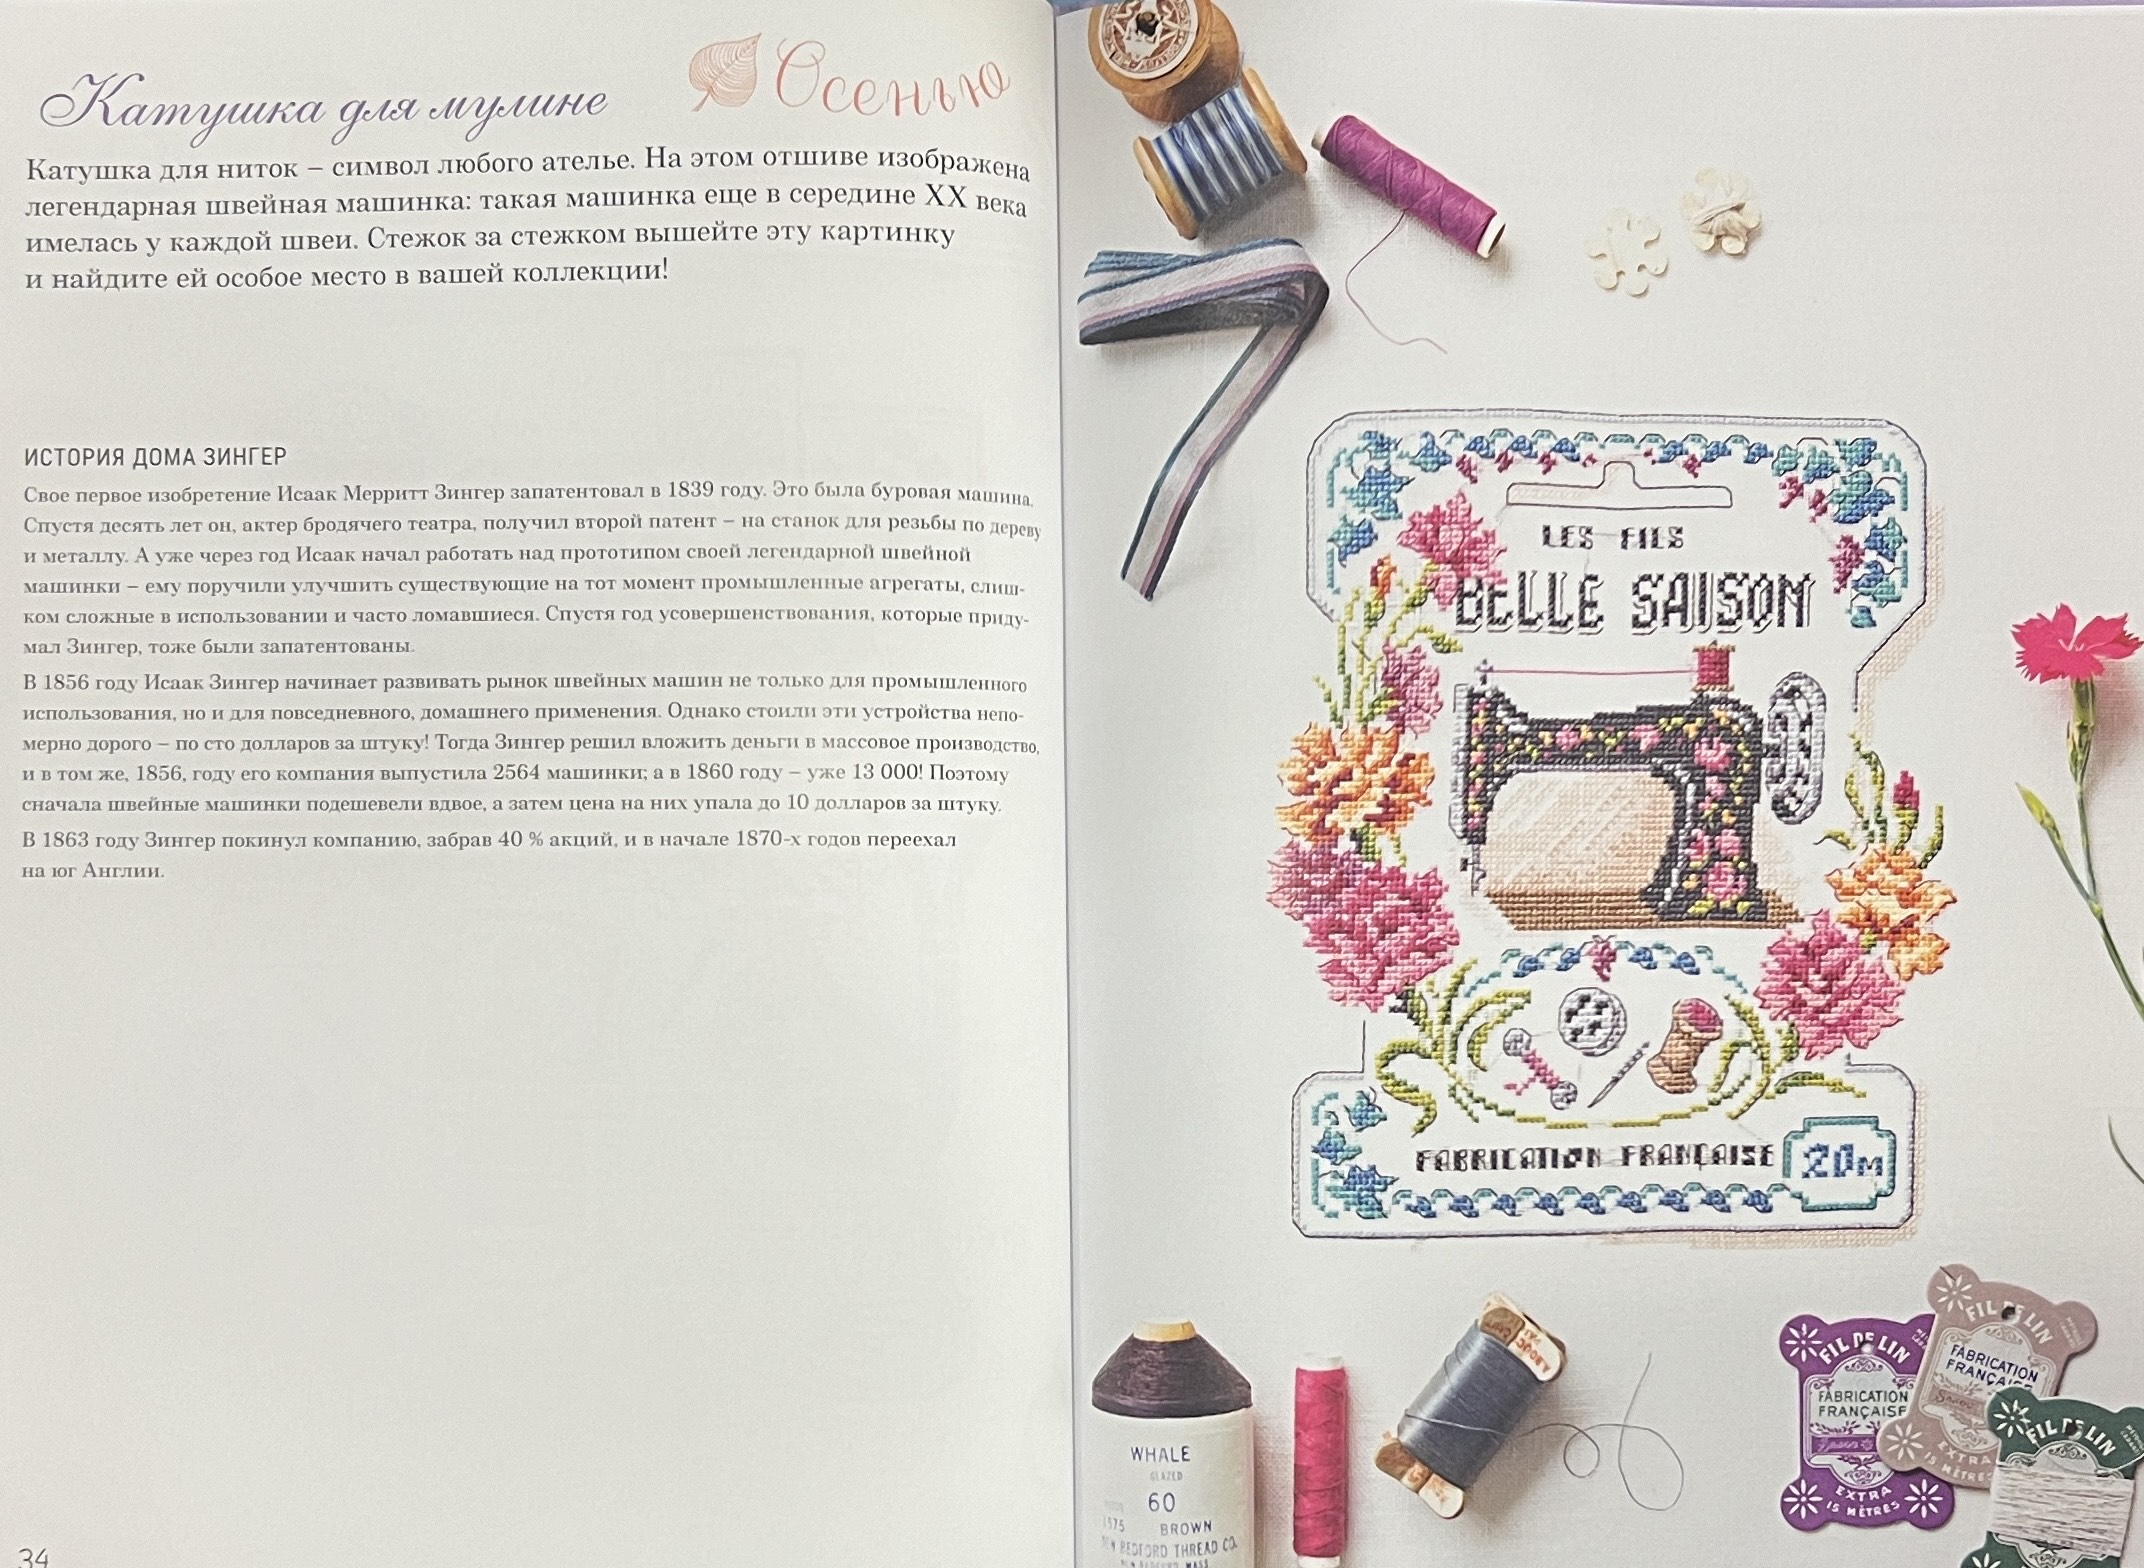 Катушка для мулине
Осенью
Катушка для ниток – символ любого ателье. На этом отшиве изображена
легендарная швейная машинка: такая машинка еще в середине XX века
имелась у каждой швеи. Стежок за стежком вышейте эту картинку
и найдите ей особое место в вашей коллекции!
ИСТОРИЯ ДОМА ЗИНГЕР
Свое первое изобретение Исаак Мерритт Зингер запатентовал в 1839 году. Это была буровая машина.
Спустя десять лет он, актер бродячего театра, получил второй патент – на станок для резьбы по дереву
и металлу. А уже через год Исаак начал работать над прототипом своей легендарной швейной
машинки – ему поручили улучшить существующие на тот момент промышленные агрегаты, слиш-
ком сложные в использовании и часто ломавшиеся. Спустя год усовершенствования, которые приду-
мал Зингер, тоже были запатентованы.
В 1856 году Исаак Зингер начинает развивать рынок швейных машин не только для промышленного
использования, но и для повседневного, домашнего применения. Однако стоили эти устройства непо-
мерно дорого – по сто долларов за штуку! Тогда Зингер решил вложить деньги в массовое производство,
и в том же, 1856, году его компания выпустила 2564 машинки; а в 1860 году – уже 13 000! Поэтому
сначала швейные машинки подешевели вдвое, а затем цена на них упала до 10 долларов за штуку.
В 1863 году Зингер покинул компанию, забрав 40 % акций, и в начале 1870-х годов переехал
на юг Англии.
34
LES FILS
BELLE SAISON
FABRICATION FRANÇAISE
20M
WHALE
GLAZED
60
1575 BROWN
BEDFORD THREAD CO.
FIL DE LIN
FABRICATION
FRANÇAISE
EXTRA
15 MÈTRES
FIL DE LIN
FABRICATION
FRANÇAISE
EXTRA
15 MÈTRES
FIL DE LIN